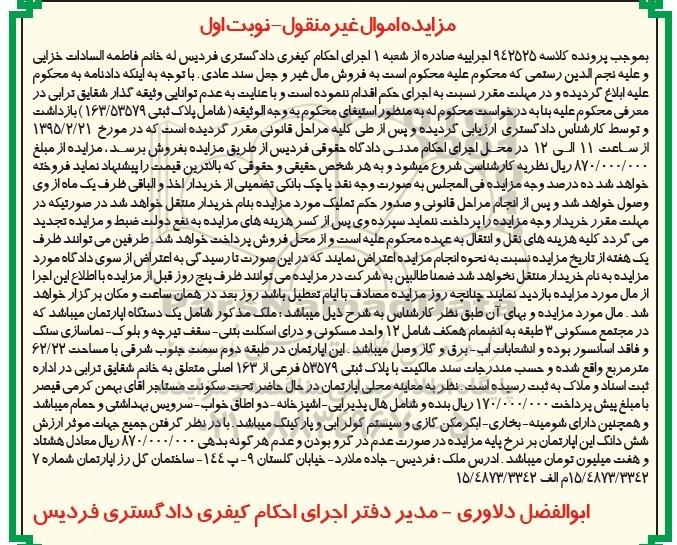 مزایده اموال غیر منقول – نوبت اول
بموجب پرونده کلاسه ۹۴۲۵۲۵ اجراییه صادره از شعبه ۱ اجرای احکام کیفری دادگستری فردیس له خانم فاطمه السادات خزایی
و علیه نجم الدین رستمی که محکوم علیه محکوم است به فروش مال غیر و جعل سند عادی . با توجه به اینکه دادنامه به محکوم
علیه ابلاغ گردیده و در مهلت مقرر نسبت به اجرای حکم اقدام ننموده است و با عنایت به عدم توانایی وثیقه گذار شقایق ترابی در
معرفی محکوم علیه بنا به درخواست محکوم له به منظور استیفای محکوم به وجه الوثیقه ( شامل پلاک ثبتی ۱۶۳/۵۳۵۷۹ ) بازداشت
و توسط کارشناس دادگستری ارزیابی گردیده و پس از طی کلیه مراحل قانونی مقرر گردیده است که در مورخ ۱۳۹۵/۲/۲۱
از ساعت ۱۱ الی ۱۲ در محل اجرای احکام مدنی دادگاه حقوقی فردیس از طریق مزایده بفروش برسد ، مزایده از مبلغ
۸۷۰/۰۰۰/۰۰۰ ریال نظریه کارشناسی شروع میشود و به هر شخص حقیقی و حقوقی که بالاترین قیمت را پیشنهاد نماید فروخته
خواهد شد ده درصد وجه مزایده فی المجلس به صورت وجه نقد یا چک بانکی تضمینی از خریدار اخذ و الباقی ظرف یک ماه از وی
وصول خواهد شد و پس از انجام مراحل قانونی و صدور حکم تملیک مورد مزایده بنام خریدار منتقل خواهد شد در صورتیکه در
مهلت مقرر خریدار وجه مزایده را پرداخت ننماید سپرده وی پس از کسر هزینه های مزایده به نفع دولت ضبط و مزایده تجدید
می گردد کلیه هزینه های نقل و انتقال به عهده محکوم علیه است و از محل فروش پرداخت خواهد شد . طرفین می توانند ظرف
یک هفته از تاریخ مزایده نسبت به نحوه انجام مزایده اعتراض نمایند که در این صورت تا رسیدگی به اعتراض از سوی دادگاه مورد
مزایده به نام خریدار منتقل نخواهد شد ضمنا طالبین به شرکت در مزایده می توانند ظرف پنج روز قبل از مزایده با اطلاع این اجرا
از مال مورد مزایده بازدید نمایند چنانچه روز مزایده مصادف با ایام تعطیل باشد روز بعد در همان ساعت و مکان برگزار خواهد
شد . مال مورد مزایده و بهای آن طبق نظر کارشناس به شرح ذیل میباشد : ملک مذکور شامل یک دستگاه اپارتمان میباشد که
در مجتمع مسکونی ۳ طبقه به انضمام همکف شامل ۱۲ واحد مسکونی و درای اسکلت بتنی- سقف تیرچه و بلوک- نماسازی سنگ
و فاقد اسانسور بوده و انشعابات اب- برق و گاز وصل میباشد . این اپارتمان در طبقه دوم سمت جنوب شرقی با مساحت ۶۲/۲۲
مترمربع واقع شده و حسب مندرجات سند مالکیت با پلاک ثبتی ۵۳۵۷۹ فرعی از ۱۶۳ اصلی متعلق به خانم شقایق ترابی در اداره
ثبت اسناد و ملاک به ثبت رسیده است . نظر به معاینه محلی اپارتمان در حال حاضر تحت سکونت مستاجر اقای بهمن کرمی قیصر
با مبلغ پیش پرداخت ۱۷۰/۰۰۰/۰۰۰ ریال بنده و شامل هال پذیرایی- اشپزخانه- دو اطاق خواب- سرویس بهداشتی و حمام میباشد
و همچنین دارای شومینه- بخاری- ابگرمکن گازی و سیستم کولر ابی و پارکینگ میباشد . با در نظر گرفتن جمیع جهات موثر ارزش
شش دانگ این اپارتمان بر نرخ پایه مزایده در صورت عدم در گرو بودن و عدم هر گونه بدهی ۸۷۰/۰۰۰/۰۰۰ ریال معادل هشتاد
و هفت میلیون تومان میباشد . ادرس ملک : فردیس- جاده ملارد- خیابان گلستان ۹- پ ۱۴۴- ساختمان گل رز اپارتمان شماره ۷
۱۵/۴۸۷۳/۳۳۴۲م الف ۱۵/۴۸۷۳/۳۳۴۲
ابوالفضل دلاوری – مدیر دفتر اجرای احکام کیفری دادگستری فردیس